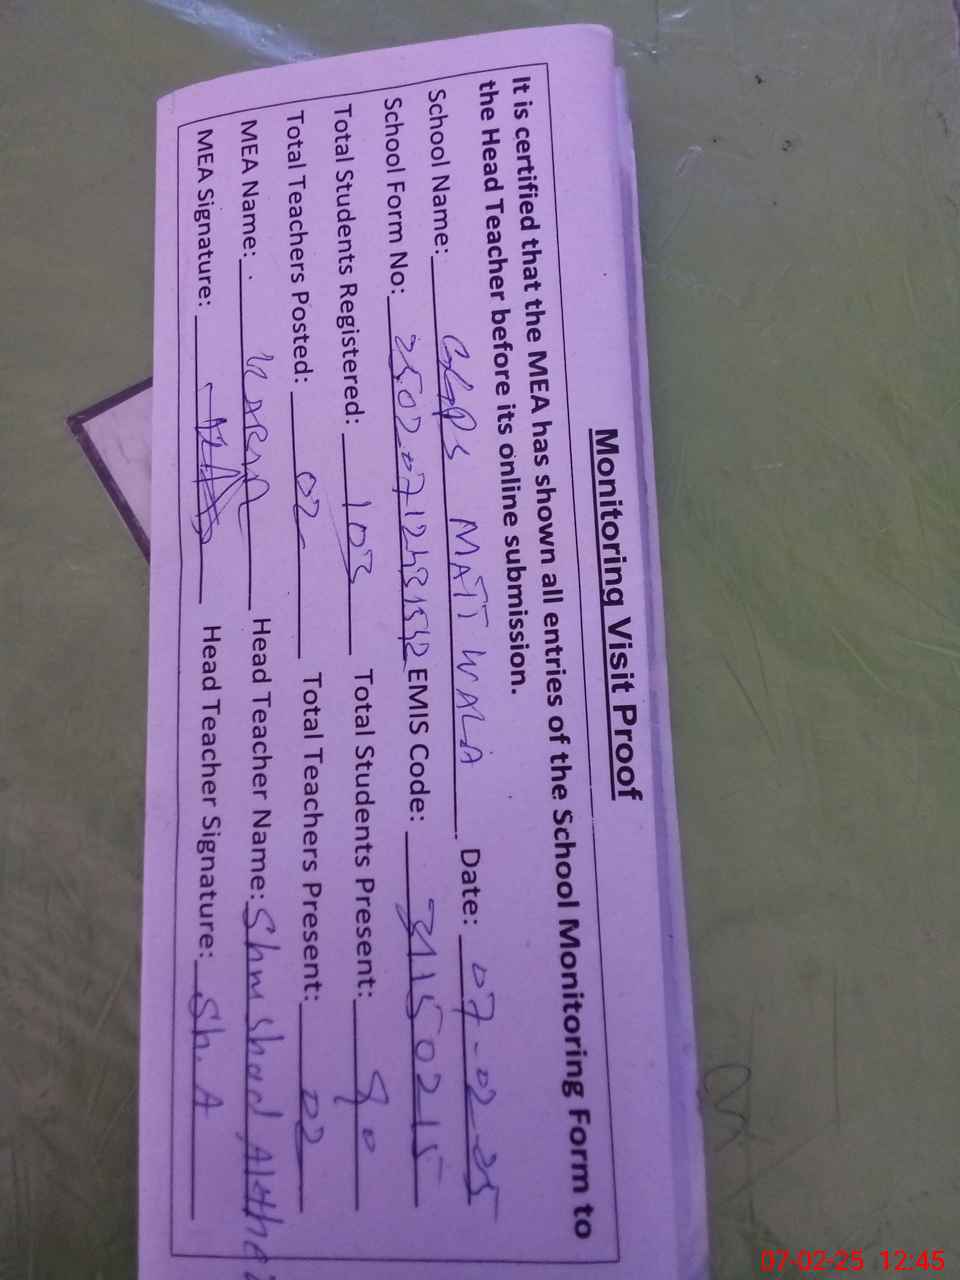 Monitoring Visit Proof
It is certified that the MEA has shown all entries of the School Monitoring Form to
the Head Teacher before its online submission.
School Name: GGPS MATT WALA Date: 07-02-25
School Form No: EMIS Code: 31150215
Total Students Registered: 103 Total Students Present: 90
Total Teachers Posted: 02 Total Teachers Present: 02
MEA Name: Head Teacher Name: Shmshad
MEA Signature: Head Teacher Signature: Sh. A
07-02-25 12:45